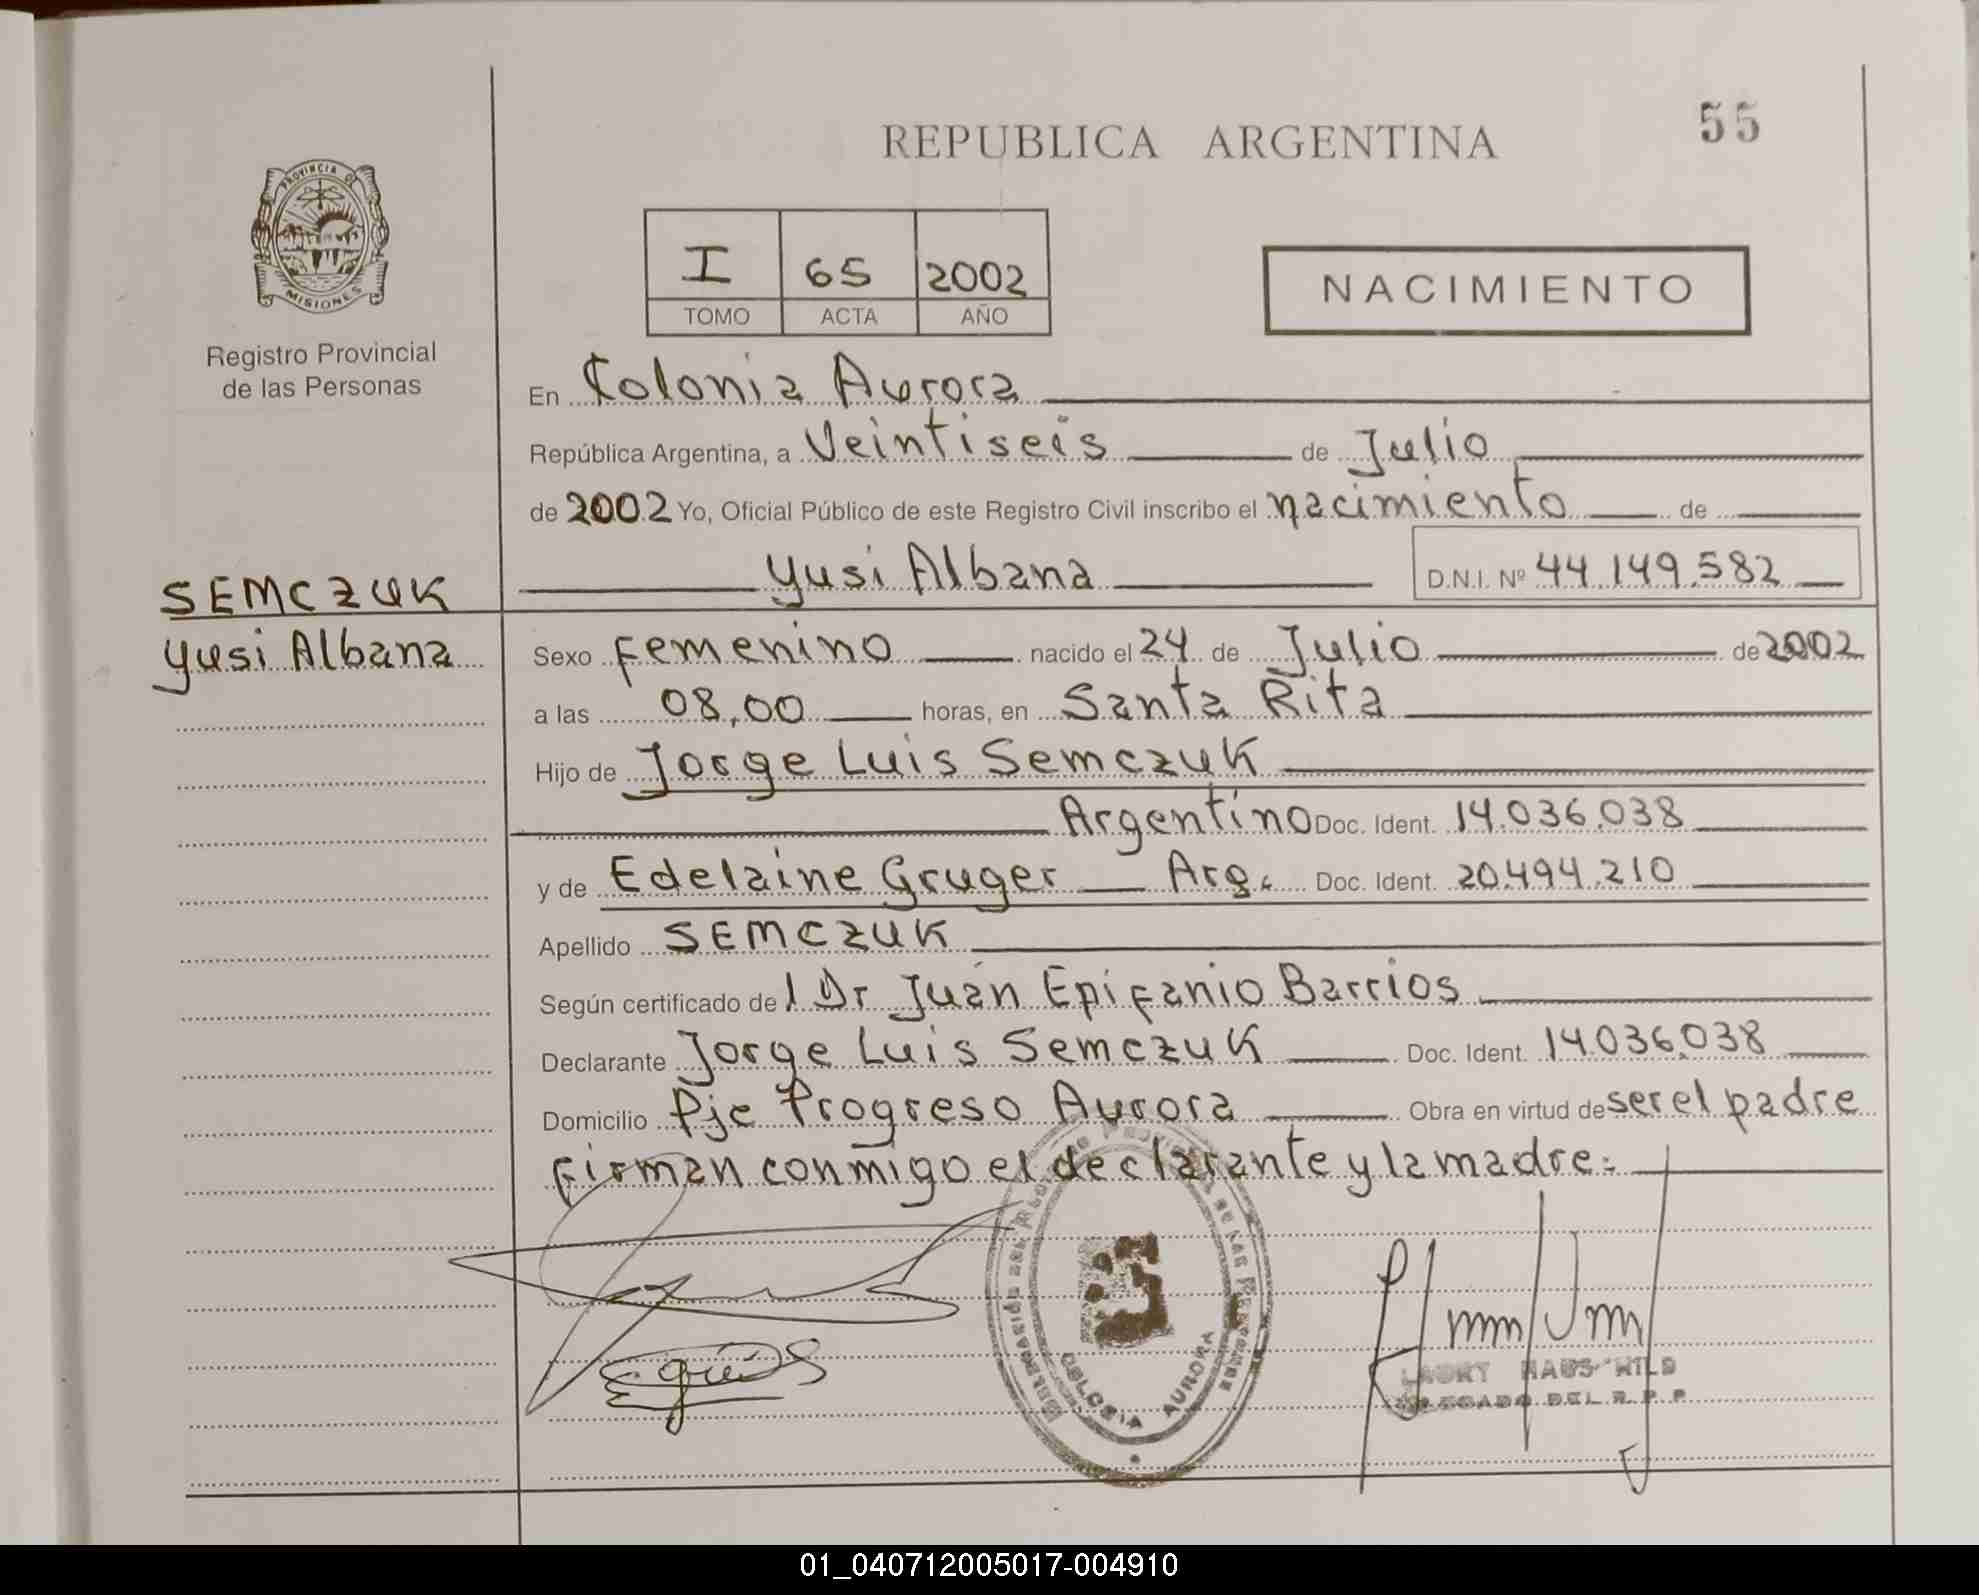 55
REPUBLICA ARGENTINA
PROVINCIA DE
MISIONES
Registro Provincial
de las Personas
I 65 2002
TOMO ACTA AÑO
NACIMIENTO
En Colonia Aurora
República Argentina, a Veintiseis de Julio
de 2002 Yo, Oficial Público de este Registro Civil inscribo el nacimiento de
Yusi Albana D.N.I. Nº 44.149.582
SEMCZUK
Yusi Albana
Sexo Femenino nacido el 24 de Julio de 2002
a las 08,00 horas, en Santa Rita
Hijo de Jorge Luis Semczuk
Argentino Doc. Ident. 14.036.038
y de Edelaine Gruger Arg. Doc. Ident. 20.494.210
Apellido SEMCZUK
Según certificado de l Dr Juan Epifanio Barrios
Declarante Jorge Luis Semczuk Doc. Ident. 14.036.038
Domicilio Pje Progreso Aurora Obra en virtud de ser el padre
Firman conmigo el declarante y la madre.
COLONIA AURORA
DELEGADO DEL R.P.P.
01_040712005017-004910